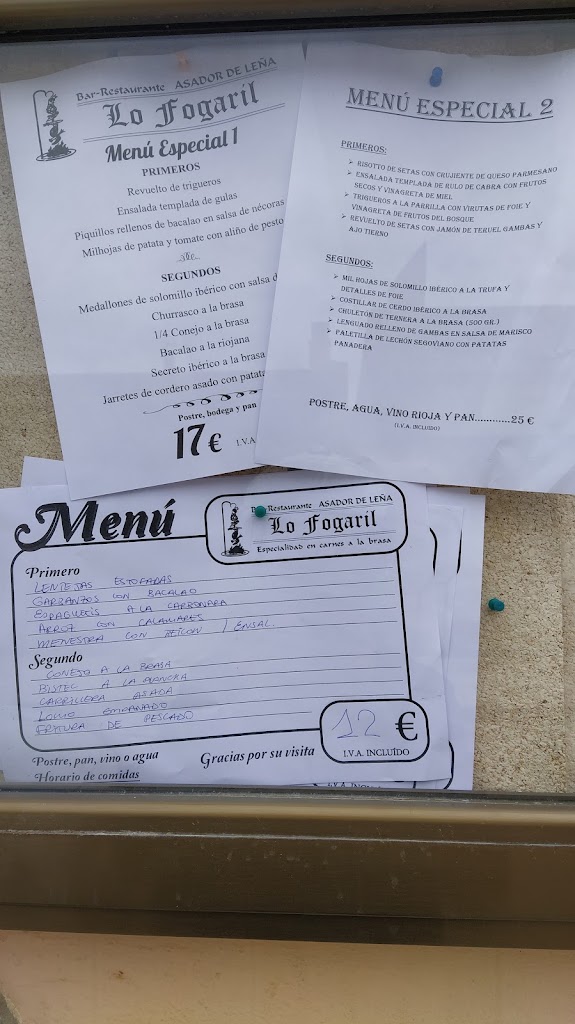 Bar-Restaurante ASADOR DE LEÑA
Lo Fogaril
Menú Especial 1
PRIMEROS
Revuelto de trigueros
Ensalada templada de gulas
Piquillos rellenos de bacalao en salsa de nécoras
Milhojas de patata y tomate con aliño de pesto
SEGUNDOS
Medallones de solomillo ibérico con salsa d
Churrasco a la brasa
1/4 Conejo a la brasa
Bacalao a la riojana
Secreto ibérico a la brasa
Jarretes de cordero asado con patata
Postre, bodega y pan
17€ I.V.A
MENÚ ESPECIAL 2
PRIMEROS:
RISOTTO DE SETAS CON CRUJIENTE DE QUESO PARMESANO
ENSALADA TEMPLADA DE RULO DE CABRA CON FRUTOS
SECOS Y VINAGRETA DE MIEL
TRIGUEROS A LA PARRILLA CON VIRUTAS DE FOIE Y
VINAGRETA DE FRUTOS DEL BOSQUE
REVUELTO DE SETAS CON JAMÓN DE TERUEL GAMBAS Y
AJO TIERNO
SEGUNDOS:
MIL HOJAS DE SOLOMILLO IBÉRICO A LA TRUFA Y
DETALLES DE FOIE
COSTILLAR DE CERDO IBÉRICO A LA BRASA
CHULETÓN DE TERNERA A LA BRASA (500 GR.)
LENGUADO RELLENO DE GAMBAS EN SALSA DE MARISCO
PALETILLA DE LECHÓN SEGOVIANO CON PATATAS
PANADERA
POSTRE, AGUA, VINO RIOJA Y PAN............25 €
(I.V.A. INCLUIDO)
Menú
Restaurante ASADOR DE LEÑA
Lo Fogaril
Especialidad en carnes a la brasa
Primero
LENTEJAS ESTOFADAS
GARBANZOS CON BACALAO
ESPAGUETIS A LA CARBONARA
ARROZ CON CALAMARES
MENESTRA CON / ENSAL.
Segundo
CONEJO A LA BRASA
BISTEC A LA PLANCHA
CARRILLERA ASADA
LOMO EMPANADO
FRITURA DE PESCADO
12 €
I.V.A. INCLUÍDO
Postre, pan, vino o agua
Gracias por su visita
Horario de comidas